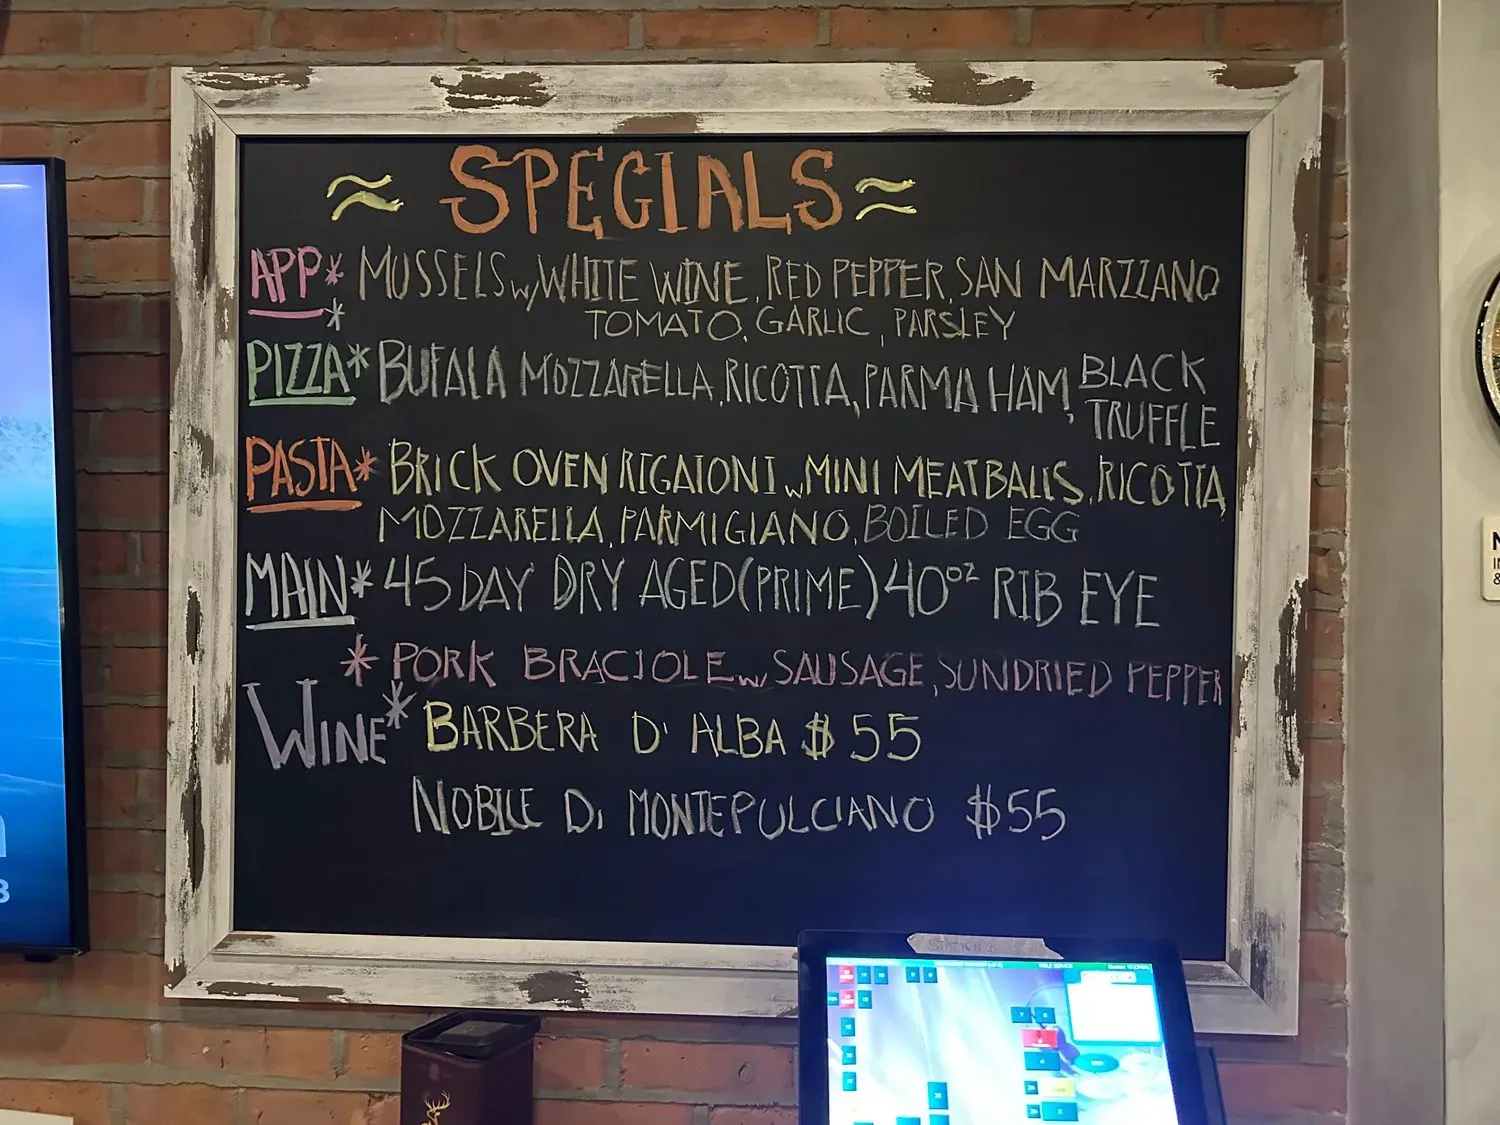 ≈ SPECIALS ≈
APP* MUSSELS w/ WHITE WINE, RED PEPPER, SAN MARZZANO
* TOMATO, GARLIC, PARSLEY
PIZZA* BUFALA MOZZARELLA, RICOTTA, PARMA HAM, BLACK
TRUFFLE
PASTA* BRICK OVEN RIGATONI w MINI MEATBALLS, RICOTTA,
MOZZARELLA, PARMIGIANO, BOILED EGG
MAIN* 45 DAY DRY AGED (PRIME) 40oz RIB EYE
* PORK BRACIOLE w/ SAUSAGE, SUNDRIED PEPPER
WINE* BARBERA D' ALBA $55
NOBILE Di MONTEPULCIANO $55